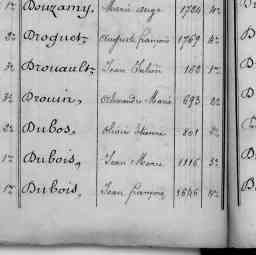 1re Douzamy, Marie ange 1724 4e
2e Droguet, auguste françois 1769 4e
3e Drouault, Jean Julien 162 1re
3e Drouin, alexandre Marie 693 2e
2e Dubos, Etienne 801 2e
1re Dubois, Jean Marie 1116 3e
1re Dubois, Jean françois 1646